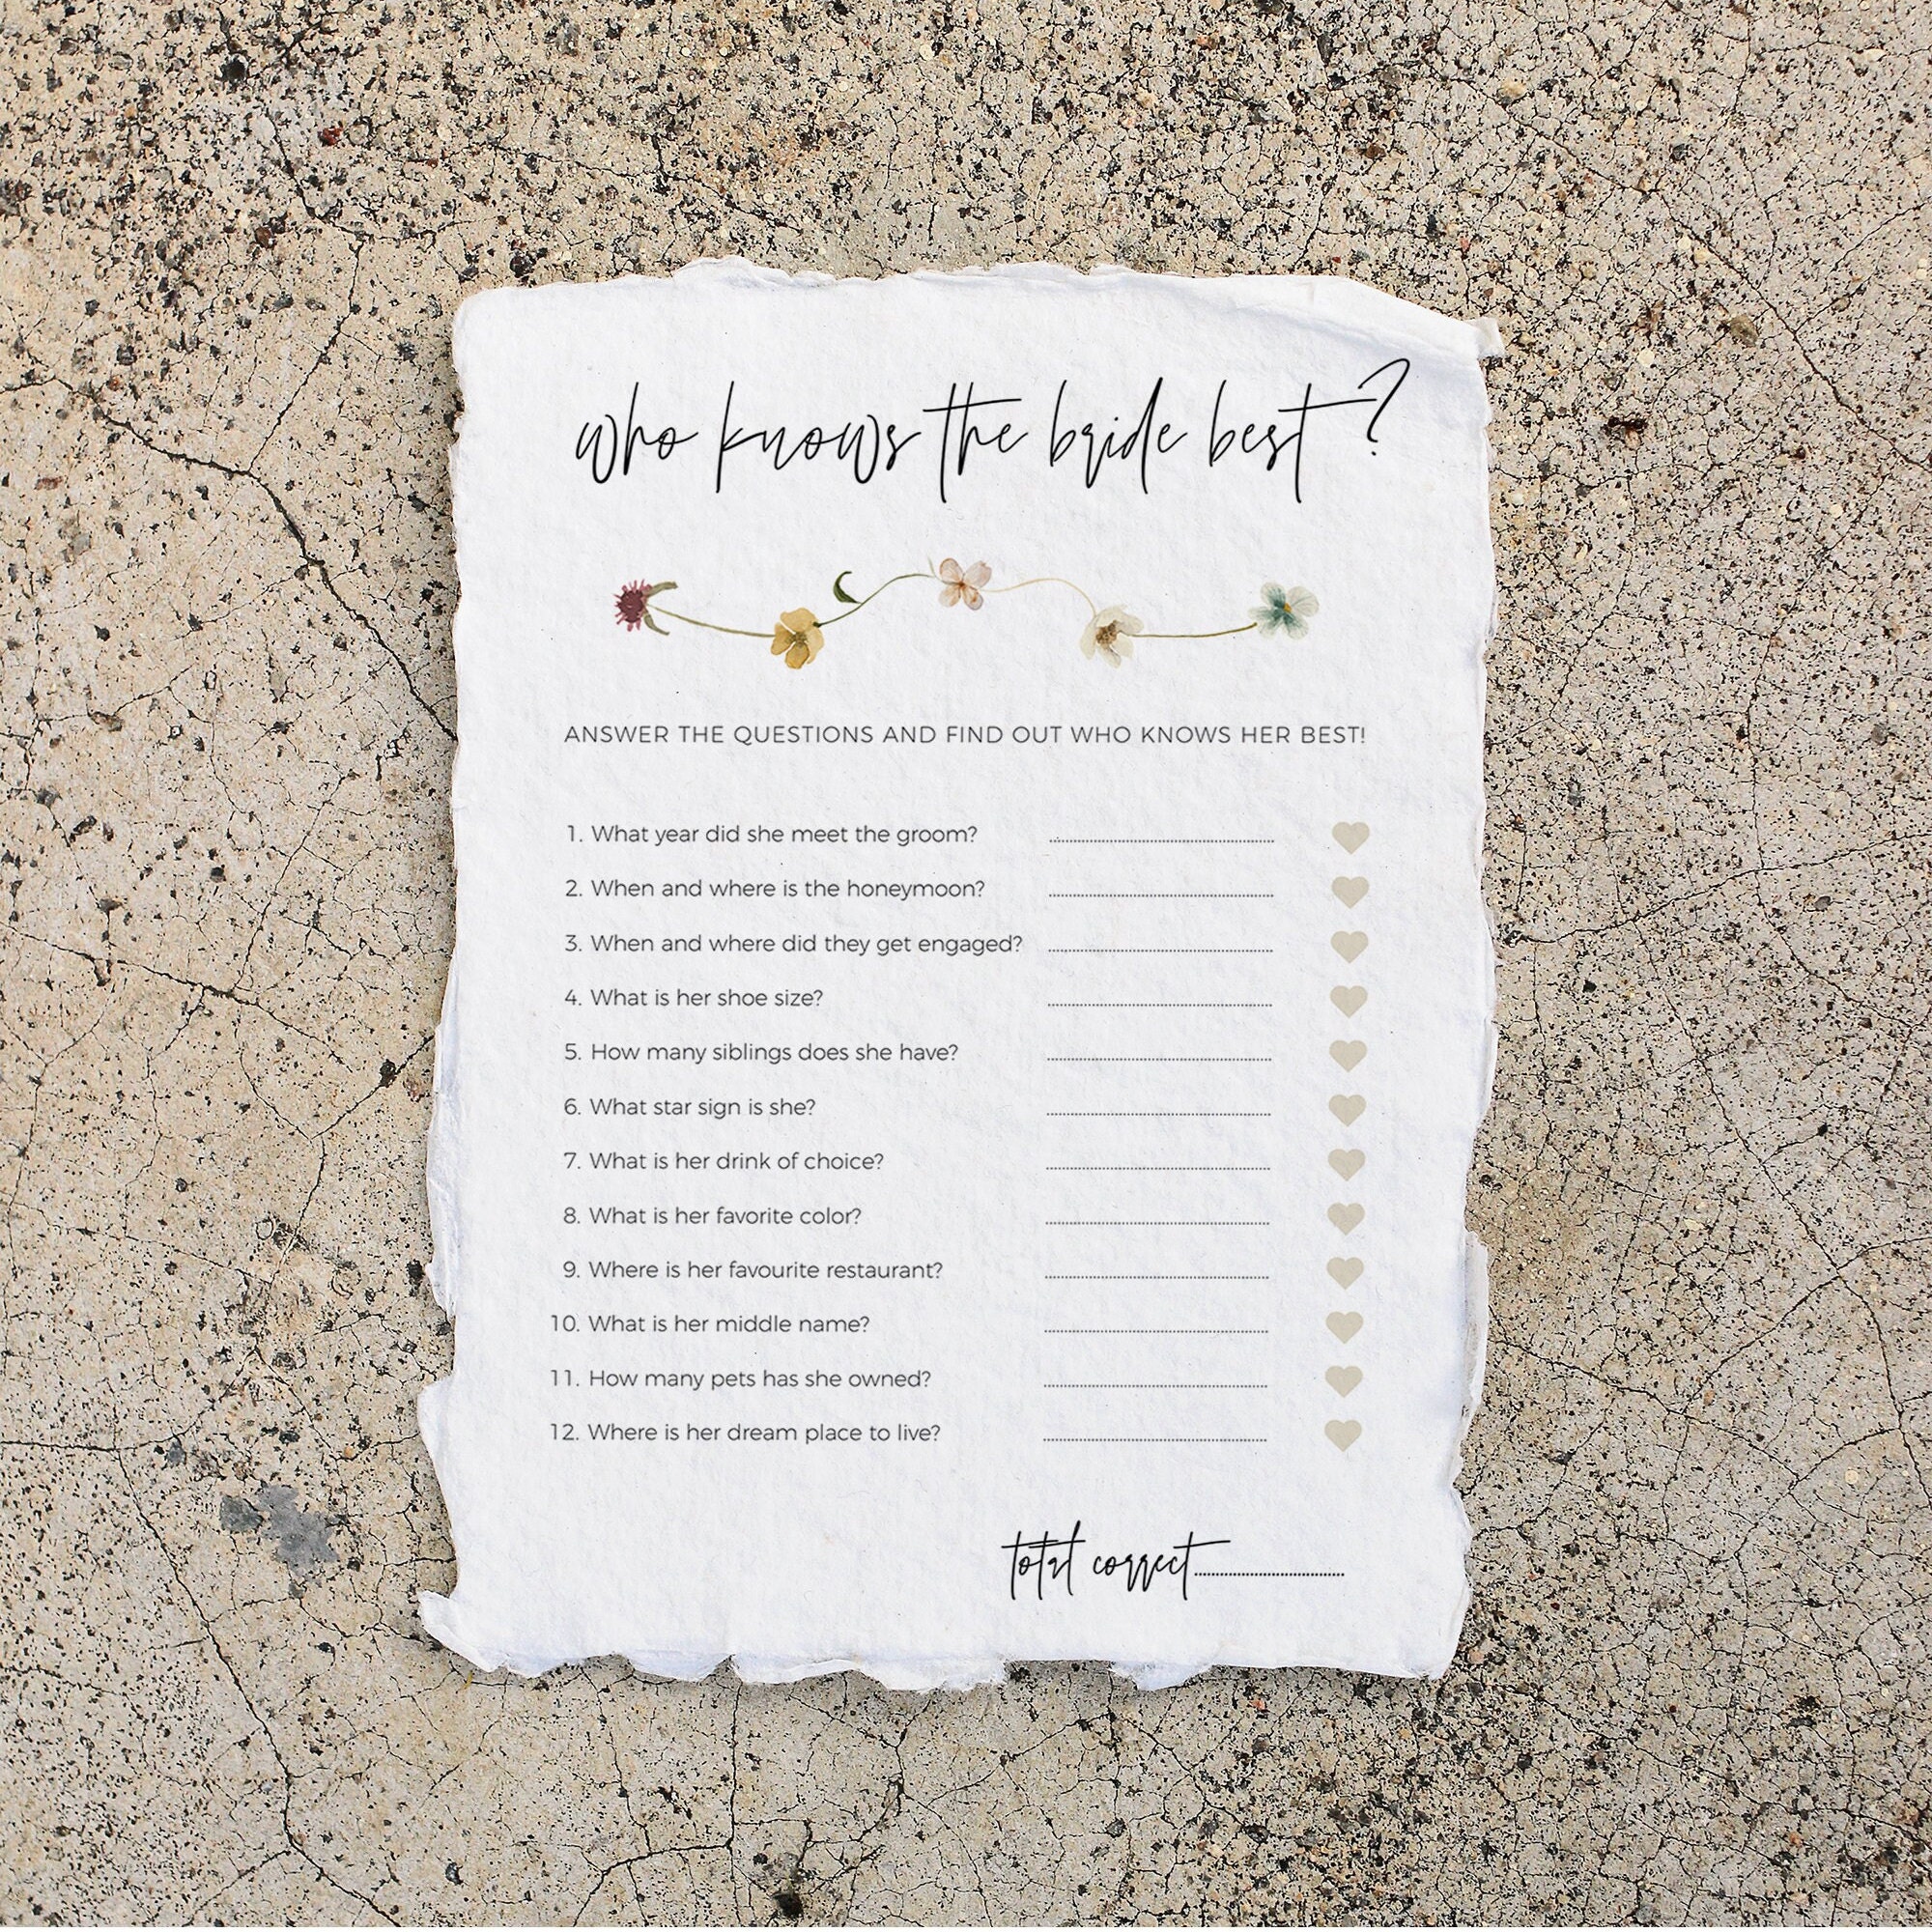 who knows the bride best ?
ANSWER THE QUESTIONS AND FIND OUT WHO KNOWS HER BEST!
1. What year did she meet the groom? ....................
2. When and where is the honeymoon? ....................
3. When and where did they get engaged? ....................
4. What is her shoe size? ....................
5. How many siblings does she have? ....................
6. What star sign is she? ....................
7. What is her drink of choice? ....................
8. What is her favorite color? ....................
9. Where is her favourite restaurant? ....................
10. What is her middle name? ....................
11. How many pets has she owned? ....................
12. Where is her dream place to live? ....................
total correct....................